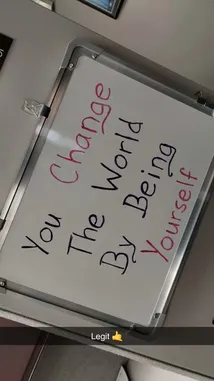 You Change
The World
By Being
Yourself
Legit 🤙